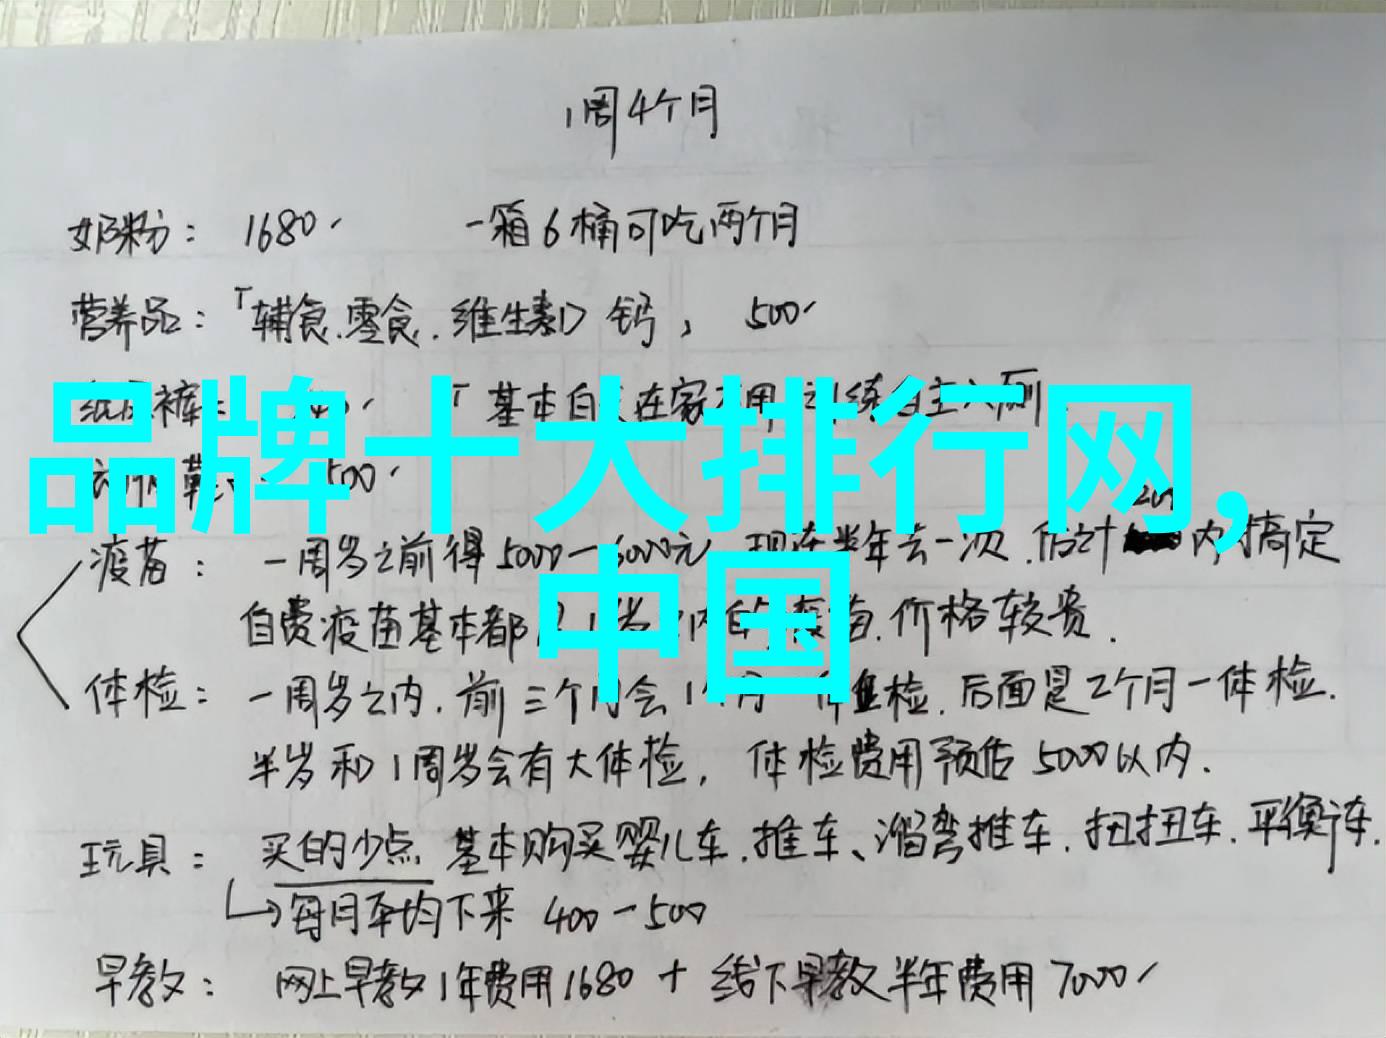 1周4个月
奶粉: 1680 一箱6桶可吃两个月
营养品:「辅食.零食.维生素D 钙, 500
裤: 「基本白 在家 用 训练自主入厕
品牌十大排行网,
500
疫苗: 一周岁之前得5000-6000元 现在半年去一次.估计 内搞定
自费疫苗基本都 疫苗.价格较贵.
中国
体检: 一周岁之内.前三个月会1个月一 检.后面是2个月一体检.
半岁和1周岁会有大体检, 体检费用预估5000以内.
玩具: 买的少点 基本购买婴儿车.推车、溜弯推车.扭扭车.平衡车.
每月平均下来 400-500
早教: 网上早教1年费用1680+线下早教半年费用7000